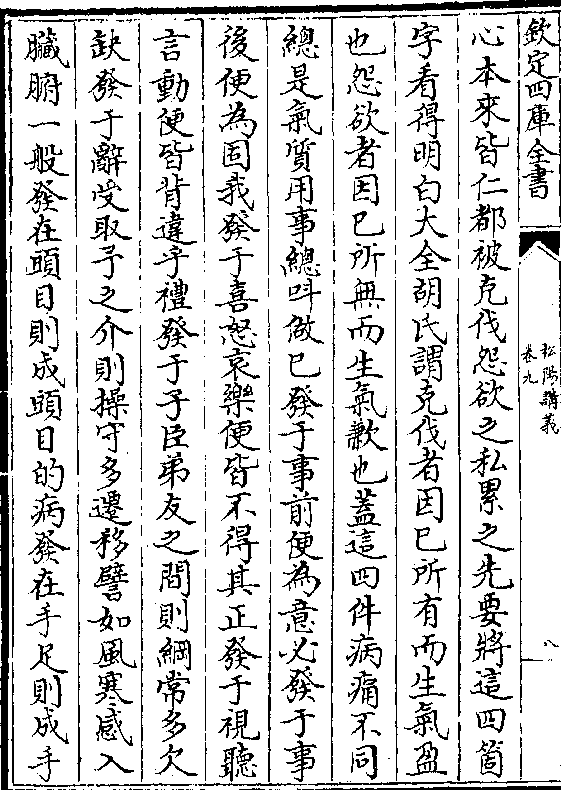 欽定四庫全書
松陽講義
卷九
八
心本來皆仁都被克伐怨欲之私累之先要將這四箇
字看得明白大全胡氏謂克伐者因已所有而生氣盈
也怨欲者因已所無而生氣歉也蓋這四件病痛不同
總是氣質用事總呌做已發于事前便為意必發于事
後便為固我發于喜怒哀樂便皆不得其正發于視聽
言動便皆背違乎禮發于子臣弟友之間則綱常多欠
缺發于辭受取予之介則操守多遷移譬如風寒感入
臟腑一般發在頭目則成頭目的病發在手足則成手